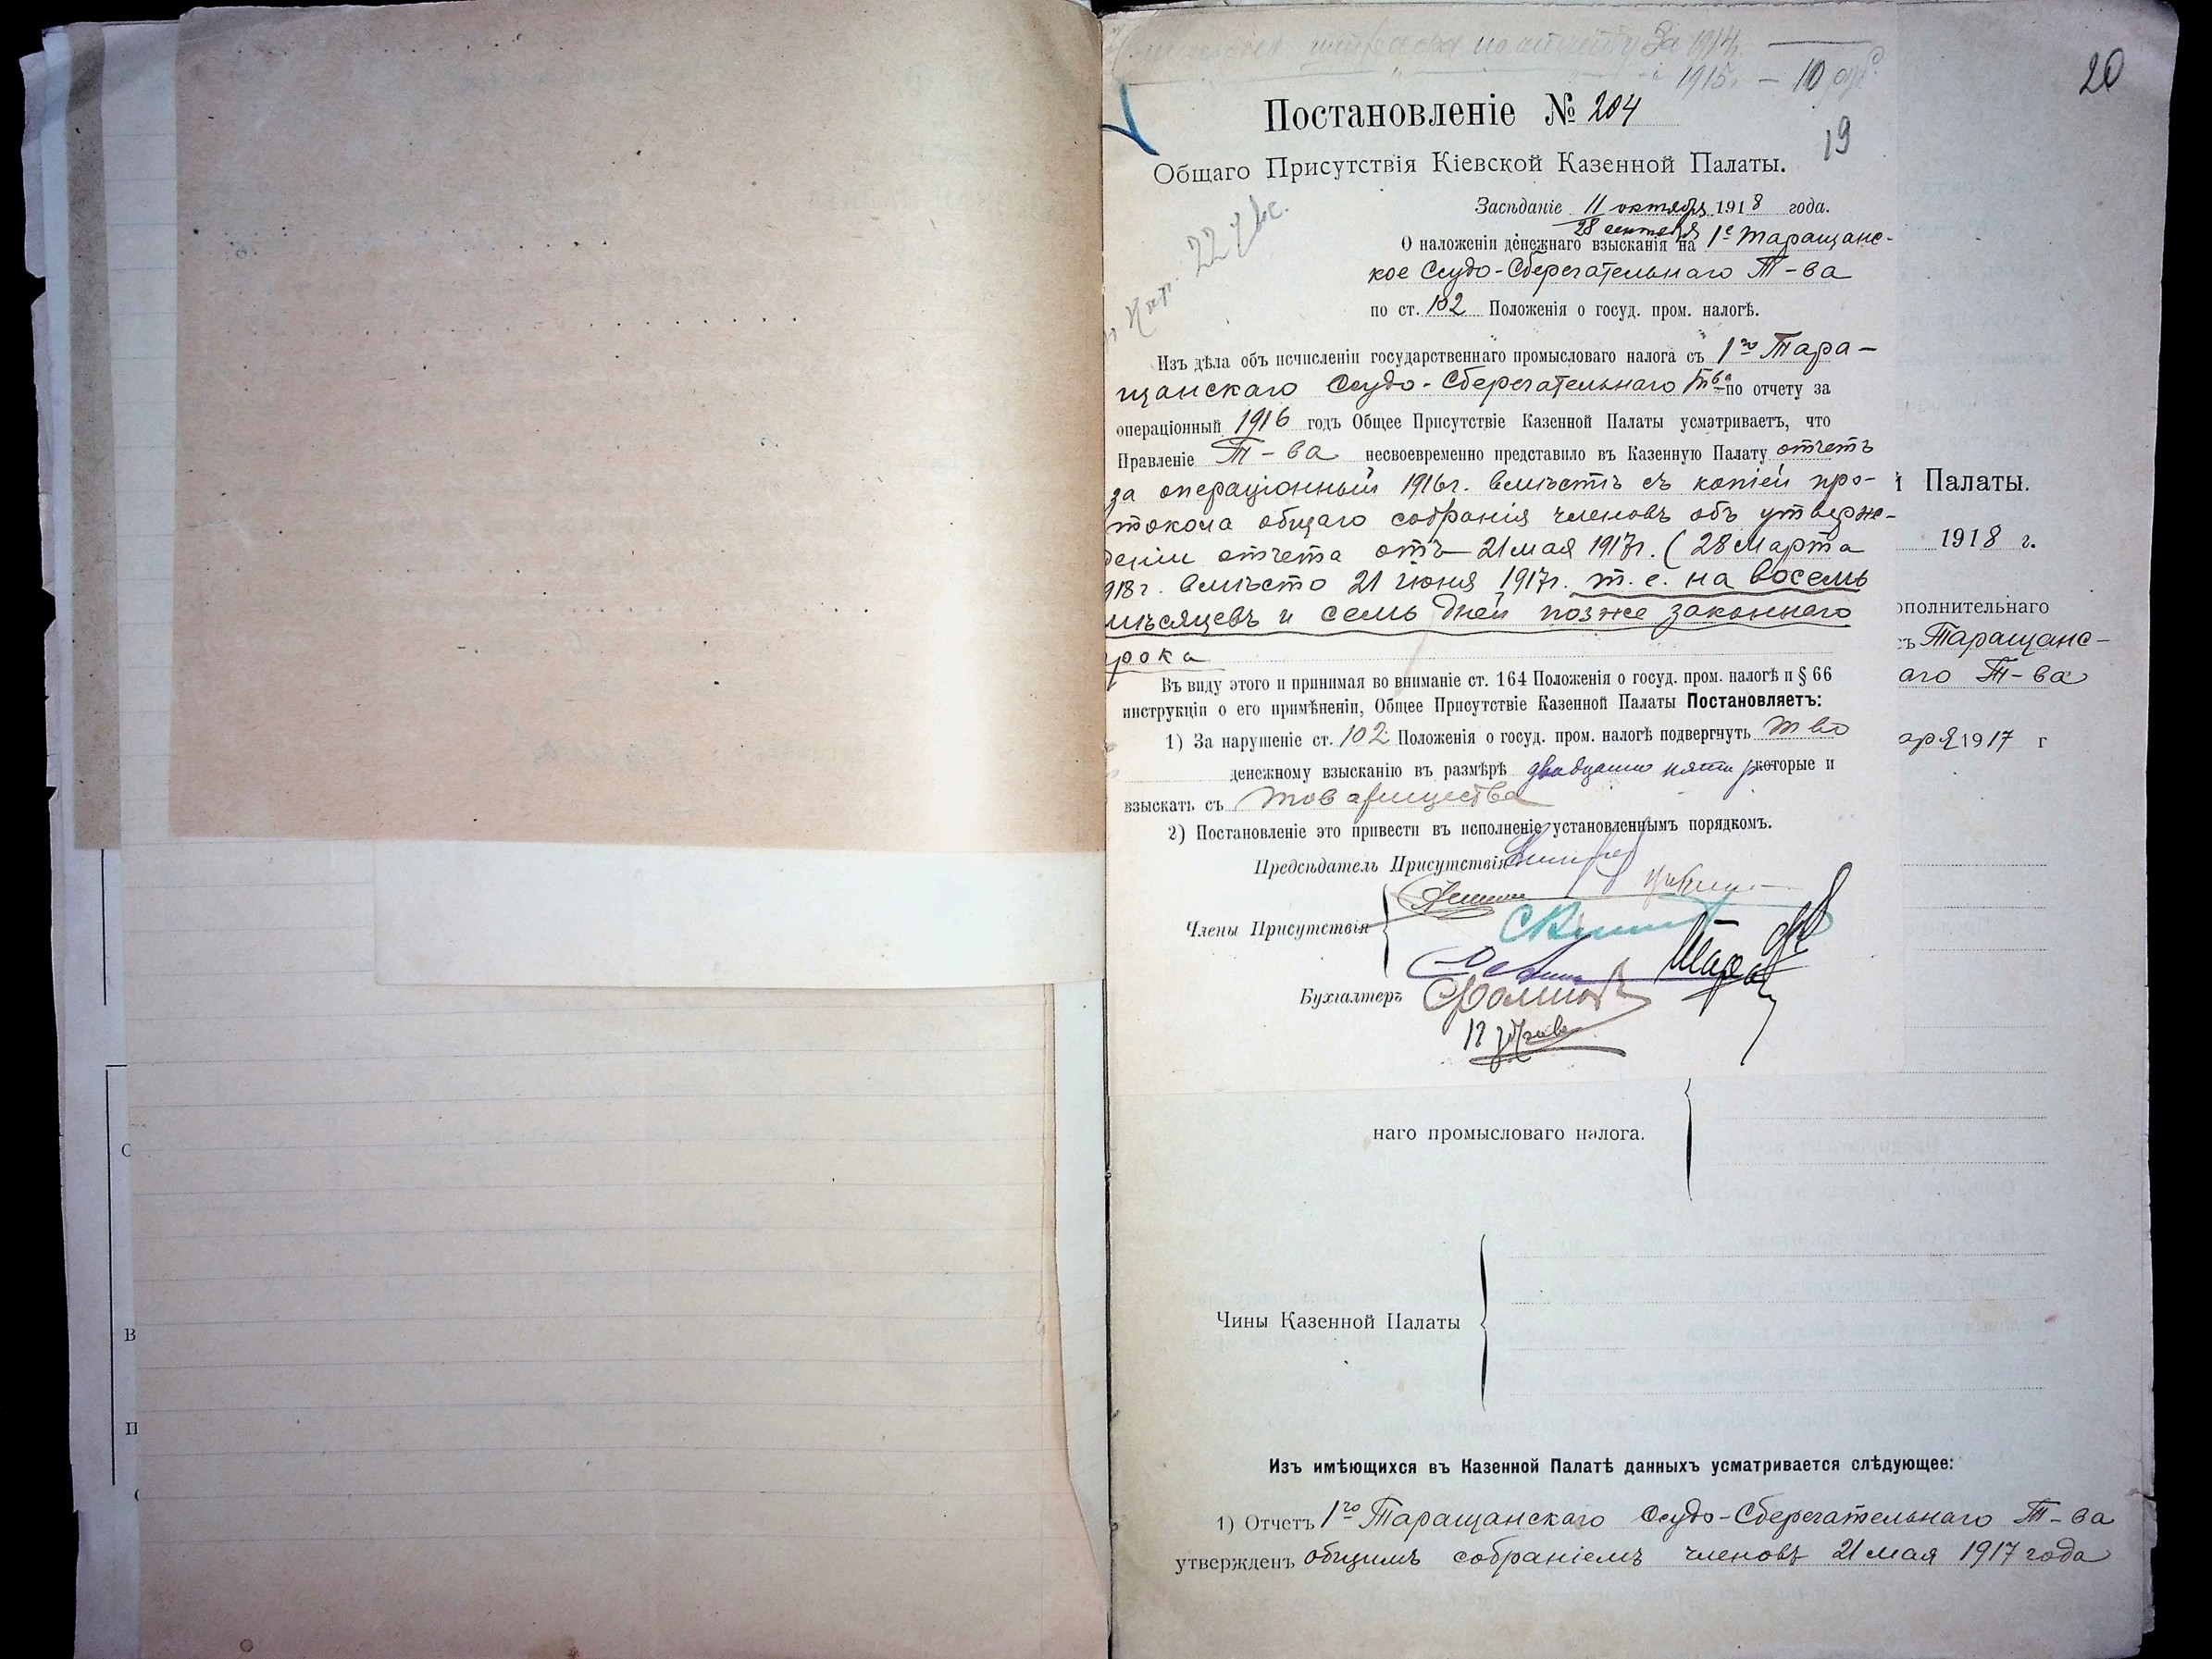 С
В
П
за 1914
1915г. — 10 руб.
20
Постановленіе № 204
19
Общаго Присутствія Кіевской Казенной Палаты.
Засѣданіе 11 октября 1918 года.
28 сентября
О наложеніи денежнаго взысканія на 1е Таращанс-
кое Ссудо-Сберегательнаго Т-ва
по ст. 102 Положенія о госуд. пром. налогѣ.
Изъ дѣла объ исчисленіи государственнаго промысловаго налога съ 1го Тара-
щанскаго Ссудо-Сберегательнаго Тва по отчету за
операціонный 1916 годъ Общее Присутствіе Казенной Палаты усматриваетъ, что
Правленіе Т-ва несвоевременно представило въ Казенную Палату отчетъ
за операціонный 1916г. вмѣстѣ съ копіей про-
токола общаго собранія членовъ объ утверж-
деніи отчета отъ 21 мая 1917г. (28 Марта
918г. вмѣсто 21 іюня 1917г. т. е. на восемь
мѣсяцевъ и семь дней позже законнаго
срока
Въ виду этого и принимая во вниманіе ст. 164 Положенія о госуд. пром. налогѣ и § 66
инструкціи о его примѣненіи, Общее Присутствіе Казенной Палаты Постановляетъ:
1) За нарушеніе ст. 102 Положенія о госуд. пром. налогѣ подвергнуть Т во
денежному взысканію въ размѣрѣ двадцати пяти р которые и
взыскать съ Товарищества
2) Постановленіе это привести въ исполненіе установленнымъ порядкомъ.
Предсѣдатель Присутствія
Члены Присутствія
Бухгалтеръ
і Палаты.
1918 г.
ополнительнаго
съ Таращанс-
аго Т-ва
аря 1917 г
наго промысловаго налога.
Чины Казенной Палаты
Изъ имѣющихся въ Казенной Палатѣ данныхъ усматривается слѣдующее:
1) Отчетъ 1го Таращанскаго Ссудо-Сберегательнаго Т-ва
утвержденъ общимъ собраніемъ членовъ 21 мая 1917 года